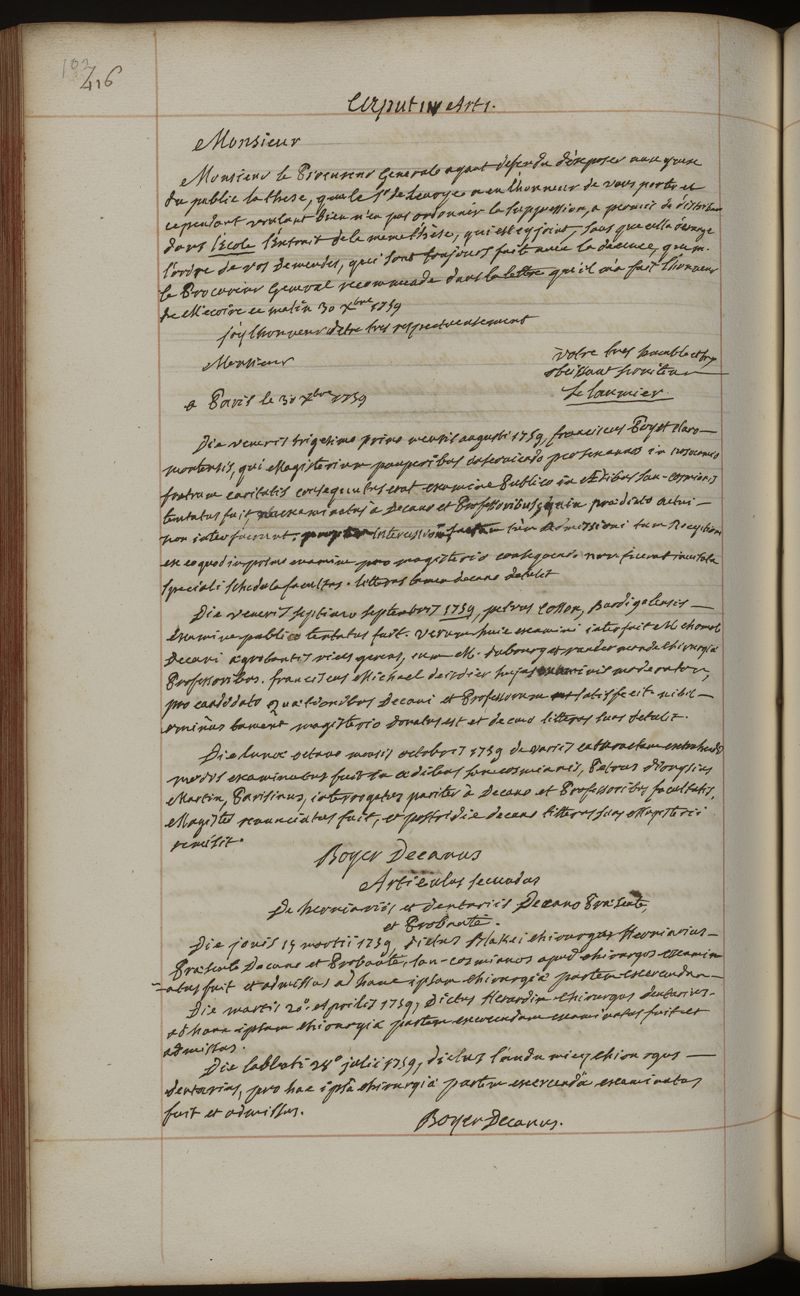 103
416
Caput IV Art 1.
Monsieur
Monsieur le Procureur General ayant defendu d'exposer aux yeux
du public la these, que le Sr de Leurye a eu l'honneur de vous porter et
cependant voulant bien n'en pas ordonner la suppression, a permis de distribuer
dans l'Ecole l'extrait de la meme these, qui est cy joint, sans que cella derange
l'ordre de vos demandes, qui sont toujours faites avec la decence, que m.
le Procureur General recommande dans la lettre qu'il m'a fait l'honneur
de m'ecrire ce matin 30 Xbre 1759
j'ay l'honneur d'etre tres respectueusement
Monsieur
votre tres humble et très
obeissant serviteur
Le Laumier
a Paris le 30 Xbre 1759
Die veneris trigesima prima mensis augusti 1759, franciscus Boyet claro-
montensis, qui Magisterium pauperibus inserviendo per sex annos in nosocomio
fratrum caritatis consequutus erat examine Publico in Ædibus San-cosmianis
tentatus fuit, examinatus à Decano et Professoribus, quia prædicto actui
non interfuerunt, tum admissioni tum Receptioni
ex eo quod in primo examine pro magisterio consequendo non fuerat invitata
speciali schedula facultas. litteras tamen decano detulit
Die veneris septima septembris 1759, petrus Cosson, Burdigalensis
examine publico tentatus fuit. verum huic examini interfuit M. chomel
Decani ægrotantis vices gerens, cum M. dubourg et chirurgiæ
Professoribus. franciscus Michael deidier hujus moderator,
pro candidato quæstionibus Decani et Professorum satisfecit nihil
ominus tamen magisterio donatus est et decano litteras suas detulit.
Die lunæ octava mensis octobris 1759 de variis cathractam extrahendi
modis examinatus fuit in ædibus san-cosmianis, Petrus dionysius
Martin, Parisinus, interrogatus pariter à Decano et Professoribus facultatis,
Magister renunciatus fuit, et postridie decano litteras suas Magisterii
remisit.
Boyer Decanus
Articulus secundus
De herniariis et dentariis Decano Præsente,
et Probante.
Die jovis 15 martii 1759, dictus Blakei chirurgus Herniarius
Præsente Decano et Probante, san-cosmianos apud chirurgos examin
atus fuit et admissus ad hanc ipsam chirurgiæ partem exercendam
Die martis 20.a aprilis 1759, Dictus Herardin chirurgus dentarius.
ad hanc ipsam chirurgiæ partem exercendam examinatus fuit et
admissus.
Die sabbati 28a julii 1759, dictus chirurgus
dentarius, pro hac ipsâ chirurgiæ partem exercendâ examinatus
fuit et admissus.
Boyer Decanus.